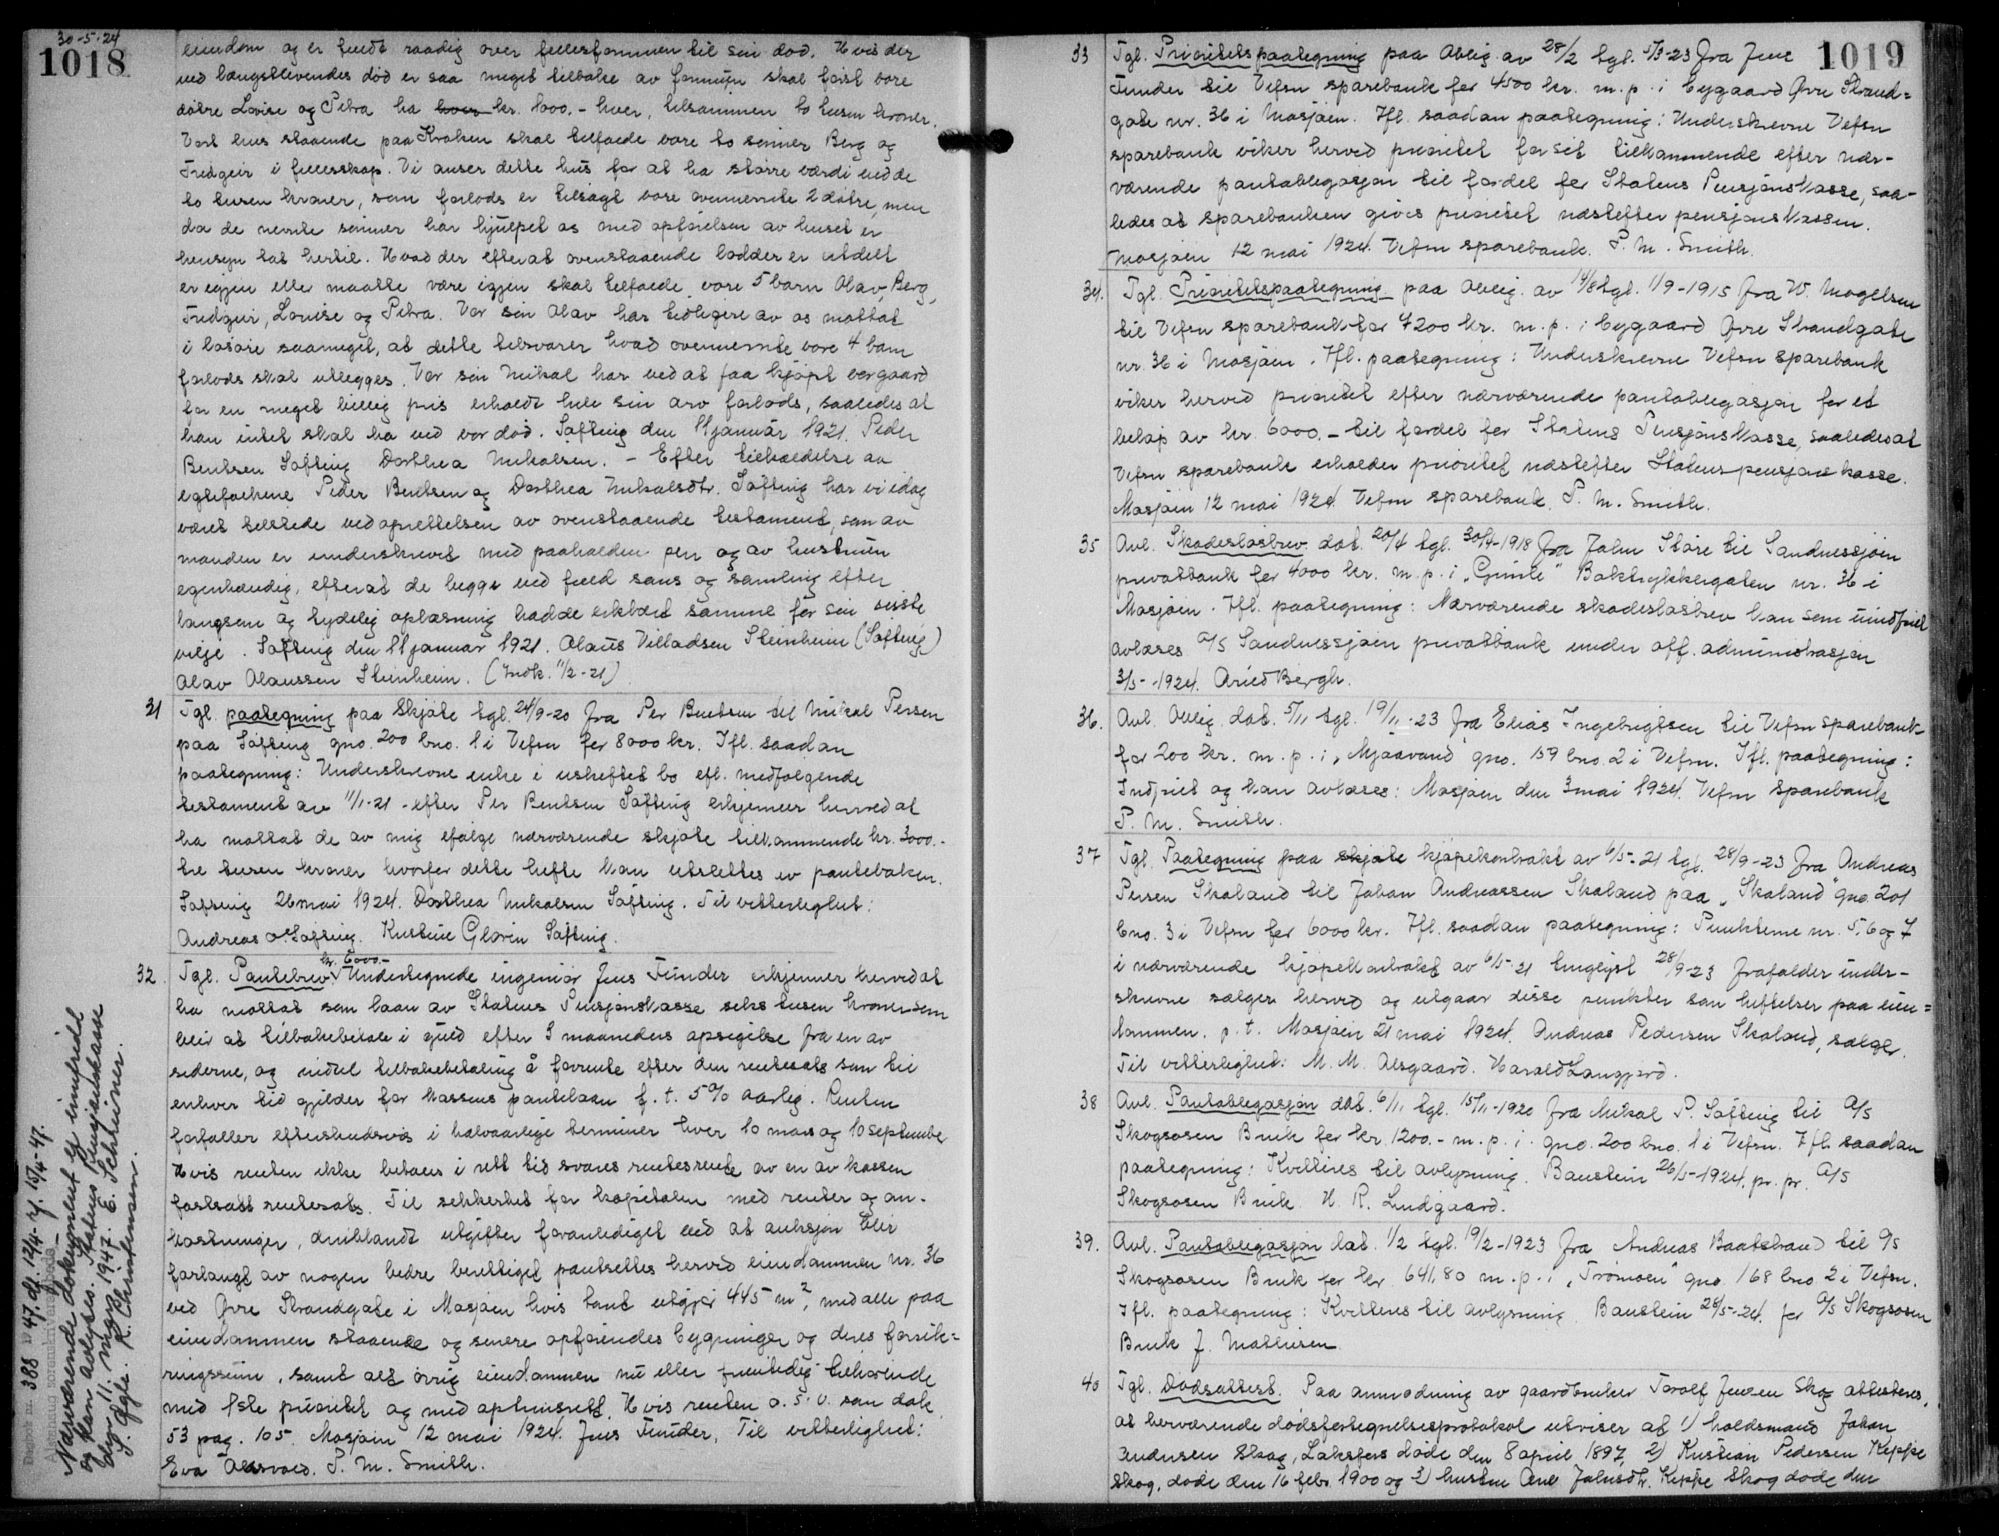 30-5-24
1018
eiendom og er fuldt raadig over fællesformuen til sin død. Hvis der
ved længstlevendes død er saa meget tilbake av formuen skal først vore
døtre Lovise og Petra ha hver kr. 1000.- hver, tilsammen to tusen kroner.
Vort hus staaende paa Kroken skal tilfalde vore to sønner Berg og
Fredgeir i fællesskap. Vi anser dette hus for at ha større værdi end de
to tusen kroner, som forlods er tilsagt vore ovennevnte 2 døtre, men
da de nevnte sønner har hjulpet os med opførelsen av huset er
hensyn tat hertil. Hvad der efterat ovenstaaende lodder er utdelt
er igjen eller maatte være igjen skal tilfalde vore 5 barn Olav, Berg,
Fredgeir, Lovise og Petra. Vor søn Olav har tidligere av os mottat
i løsøre saameget, at dette tilsvarer hvad ovennemnte vore 4 barn
forlods skal utlegges. Vor søn Mikal har ved at faa kjøpt vor gaard
for en meget billig pris erholdt hele sin arv forlods, saaledes at
han intet skal ha ved vor død. Søfting den 11 januar 1921. Peder
Bentsen Søfting Dorthea Mikalsen. - Efter tilkaldelse av
egtefolkene Peder Bentsen og Dorthea Mikalsdtr. Søfting har vi idag
været tilstede ved oprettelsen av ovenstaaende testament, som av
manden er underskrevet med paaholden pen og av hustruen
egenhændig, efterat de begge ved fuld sans og samling efter
langsom og tydelig oplæsning hadde erklært samme for sin sidste
vilje. Søfting den 11 januar 1921. Olaus Villadsen Steinheim (Søfting)
Olav Olaussen Steinheim. (Indk. 11/2-21)
31 Tgl. paategning paa Skjøte tgl. 24/9-20 fra Per Bentsen til Mikal Persen
paa Søfting gno. 200 bno. 1 i Vefsn for 8000 kr. Ifl. saadan
paategning: Underskrevne enke i uskiftet bo efl. medfølgende
testament av 11/1-21 - efter Per Bentsen Søfting erkjenner herved at
ha mottat de av mig efølge nærværende skjøte tilkommende kr. 3000.-
tre tusen kroner hvorfor dette hefte kan utslettes av panteboken.
Søfting 26 mai 1924. Dorthea Mikalsen Søfting. Til vitterlighet:
Andreas O. Søfting. Kristine Glørin Søfting.
32. Tgl. Pantebrev kr. 6000.- Undertegnede ingeniør Jens Tünder erkjenner herved at
ha mottat som laan av Statens Pensjonskasse seks tusen kroner som
blir at tilbakebetale i gjeld efter 3 maaneders opsigelse fra en av
siderne, og indtil tilbakebetaling å forrente efter den rentesats som til
enhver tid gjelder for kassens pantelaan f. t. 5% aarlig. Renten
forfaller efterskudsvis i halvaarlige terminer hver 10 mars og 10 september
Hvis renten ikke betales i rett tid svares rentesrente av en av kassen
fastsatt rentesats. Til sikkerhet for kapitalen med renter og om-
kostninger, deriblandt utgifter foranlediget ved at auksjon blir
forlangt av nogen bedre berettiget pantsettes herved eiendommen nr. 36
ved Øvre Strandgate i Mosjøen hvis tomt utgjør 445 m², med alle paa
eiendommen staaende og senere opførendes bygninger og deres forsik-
ringssum, samt alt øvrig eiendommen nu eller fremtidig tilhørende
med 1ste prioritet og med optrinsrett. Hvis renten o.s.v. som dok.
53 pag. 105. Mosjøen 12 mai 1924. Jens Tünder, Til vitterlighet:
Eva Aasvold. P. M. Smith.
388 47. df. 12/4 - tgl. 15/4-47.
Nærværende dokument er innfridd
og kan avlyses. Statens Pensjonskasse
Oslo, 11. mars 1947. E. Schreiner.
K. Christensen.
1019
33 Tgl. Prioritetspaategning paa Oblig. av 28/2 tgl. 5/3-23 fra Jens
Tünder til Vefsn sparebank for 4500 kr. m.p. i bygaard Øvre Strand-
gate nr. 36 i Mosjøen. Ifl. saadan paategning: Underskrevne Vefsn
sparebank viker herved prioritet for sit tilkommende efter nær-
værende pantobligasjon til fordel for Statens Pensjonskasse, saa-
ledes at sparebanken gives prioritet næstefter pensjonskassen.
Mosjøen 12 mai 1924. Vefsn sparebank. P. M. Smith.
34. Tgl. Prioritetspaategning paa Oblig. av 14/8 tgl. 1/9-1915 fra W. Mogelsen
til Vefsn sparebank for 7200 kr. m.p. i bygaard Øvre Strandgate
nr. 36 i Mosjøen. Ifl. paategning: Underskrevne Vefsn sparebank
viker herved prioritet efter nærværende pantobligasjon for et
beløp av kr. 6000.- til fordel for Statens Pensjonskasse, saaledes at
Vefsn sparebank erholder prioritet næstefter Statens pensjonskasse.
Mosjøen 12 mai 1924. Vefsn sparebank. P. M. Smith.
35 Avl. Skadesløsbrev dat. 20/4 tgl. 30/4-1918 fra John Støre til Sandnessjøen
privatbank for 4000 kr. m.p. i "Gimle" Boktrykkergaten nr. 36 i
Mosjøen. Ifl. paategning: Nærværende skadesløsbrev kan som indfriet
avlæses A/S Sandnessjøen privatbank under off. administrasjon
3/5-1924. Arild Bergh.
36. Avl. Oblig. dat. 5/11 tgl. 19/11-23 fra Elias Ingebrigtsen til Vefsn sparebank
for 200 kr. m.p. i "Mjaavand" gno. 159 bno. 2 i Vefsn. Ifl. paategning:
Indfriet og kan avlæses: Mosjøen den 3 mai 1924. Vefsn sparebank
P. M. Smith.
37 Tgl. Paategning paa skjøte kjøpekontrakt av 6/5-21 tgl. 28/9-23 fra Andreas
Persen Skaland til Johan Andreassen Skaland paa "Skaland" gno. 201
bno. 3 i Vefsn for 6000 kr. Ifl. saadan paategning: Punkterne nr. 5, 6 og 7
i nærværende kjøpekontrakt av 6/5-21 tinglyst 28/9-23 frafalder under-
skrevne sælger herved og utgaar disse punkter som heftelser paa eien-
dommen. p.t. Mosjøen 21 mai 1924. Andreas Pedersen Skaland, sælger.
Til vitterlighet: M. M. Alsgaard. Harald Langjord.
38 Avl. Pantobligasjon dat. 6/11 tgl. 15/11-1920 fra Mikal P. Søfting til A/S
Skogsosen Bruk for kr. 1200.- m.p. i gno. 200 bno. 1 i Vefsn. Ifl. saadan
paategning: Kvitteres til avlysning. Baustein 26/5-1924. pr. pr. A/S
Skogsosen Bruk H. R. Lundgaard.
39. Avl. Pantobligasjon dat. 1/2 tgl. 19/2-1923 fra Andreas Baatstrand til A/S
Skogsosen Bruk for kr. 641.80 m.p. i "Trømoen" gno. 168 bno. 2 i Vefsn.
Ifl. paategning: Kvitteres til avlysning Baustein 26/5-24. for A/S Skogsosen
Bruk J. Mathisen
40 Tgl. Dødsattest. Paa anmodning av gaardbruker Torolf Jensen Skog attesteres,
at herværende dødsfortegnelsesprotokol utviser at 1) holdsmand Johan
Andersen Skog, Laksfors døde den 8 april 1897, 2) Kristian Pedersen Keppe
Skog, døde den 16 febr. 1900 og 3) hustru Ane Johnsdtr. Keppe Skog døde den